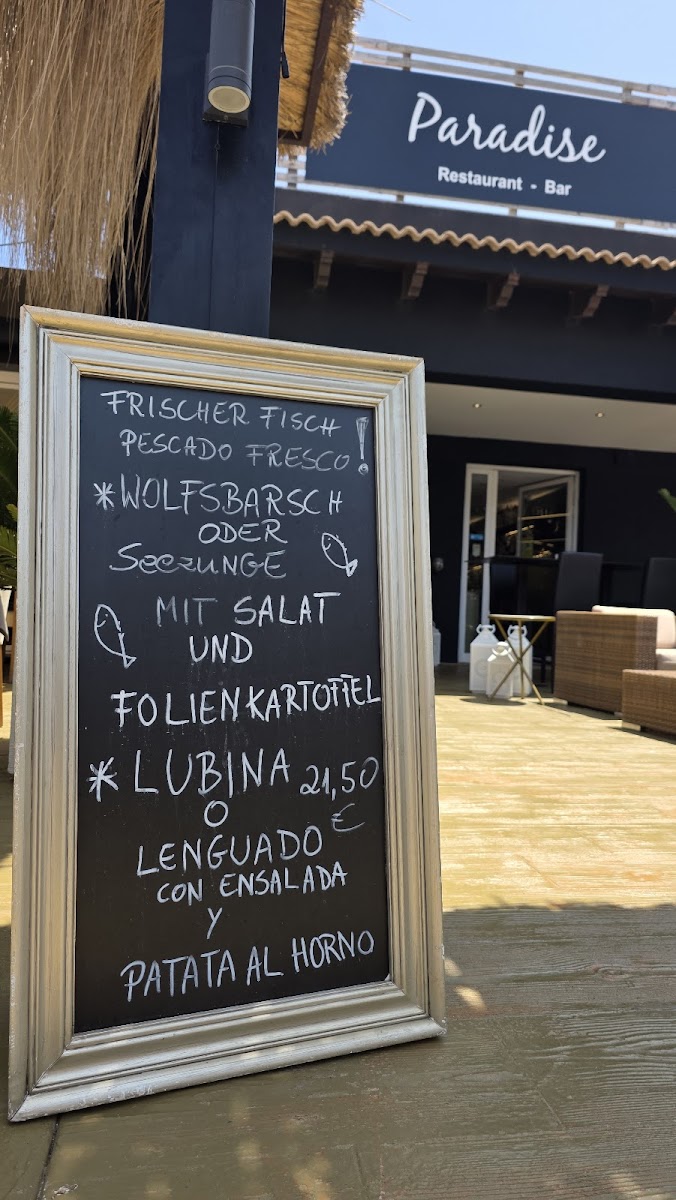 Paradise
Restaurant - Bar
FRISCHER FISCH
PESCADO FRESCO !
*WOLFSBARSCH
ODER
SeezUNGE
MIT SALAT
UND
FOLIENKARTOFFEL
*LUBINA 21,50
O €
LENGUADO
CON ENSALADA
Y
PATATA AL HORNO